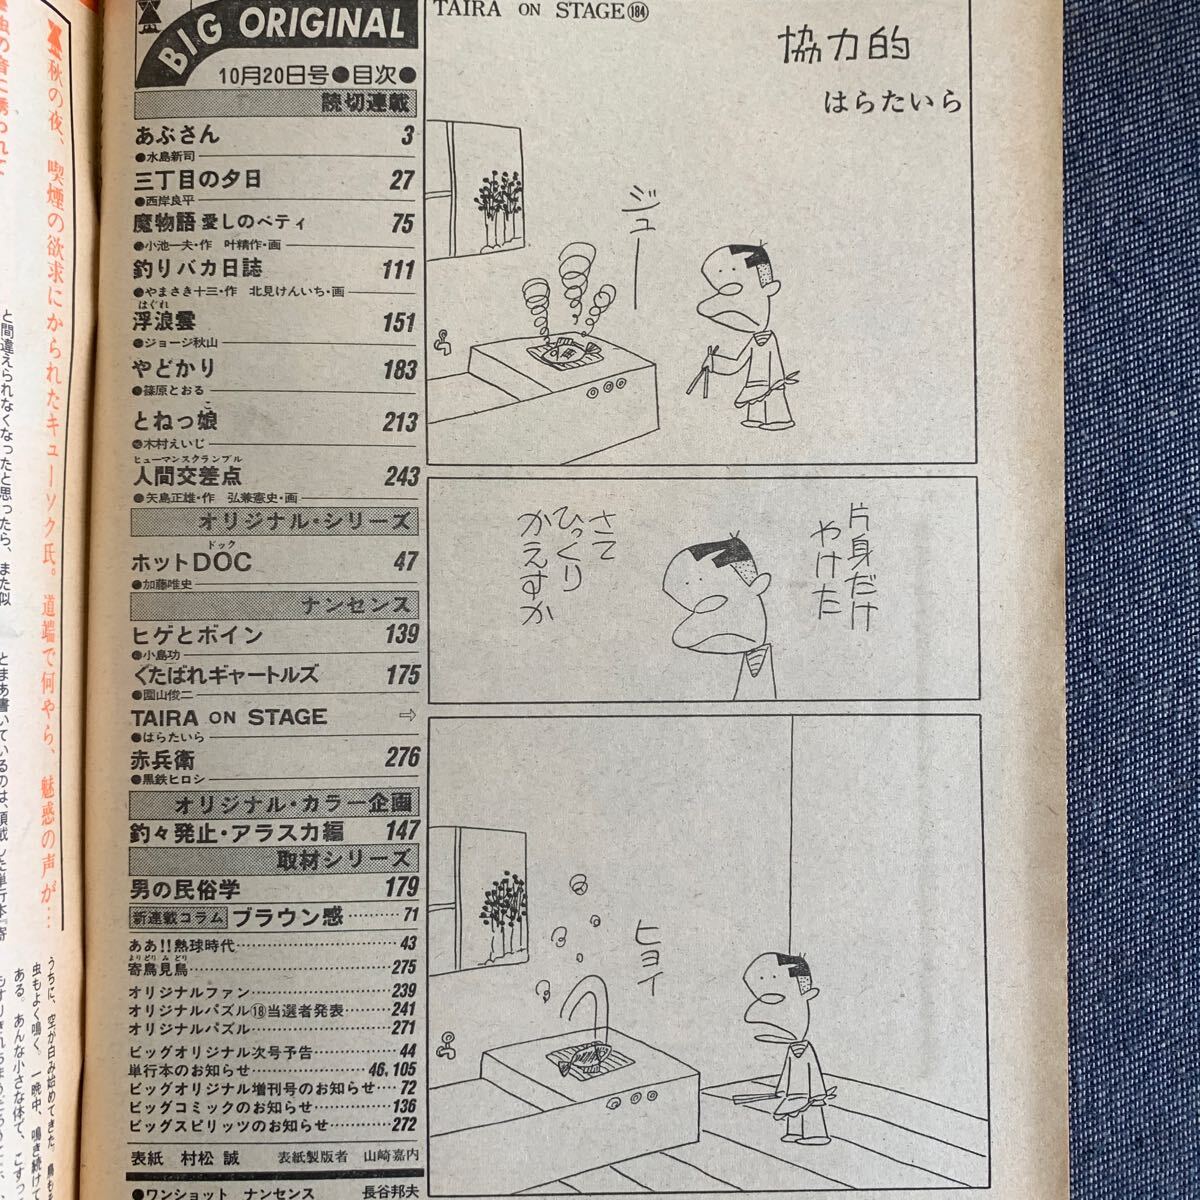 BIG ORIGINAL
10月20日号●目次●
読切連載
あぶさん 3
●水島新司
三丁目の夕日 27
●西岸良平
魔物語 愛しのベティ 75
●小池一夫・作 叶精作・画
釣りバカ日誌 111
●やまさき十三・作 北見けんいち・画
はぐれ
浮浪雲 151
●ジョージ秋山
やどかり 183
●篠原とおる
こ
とねっ娘 213
●木村えいじ
ヒューマンスクランブル
人間交差点 243
●矢島正雄・作 弘兼憲史・画
オリジナル・シリーズ
ドック
ホットDOC 47
●加藤唯史
ナンセンス
ヒゲとボイン 139
●小島功
くたばれギャートルズ 175
●園山俊二
TAIRA ON STAGE ⇨
●はらたいら
赤兵衛 276
●黒鉄ヒロシ
オリジナル・カラー企画
釣々発止・アラスカ編 147
取材シリーズ
男の民俗学 179
新連載コラム ブラウン感………71
ああ!!熱球時代……………………43
よりどりみどり
寄鳥見鳥……………………275
オリジナルファン……………………239
オリジナルパズル⑱当選者発表………241
オリジナルパズル……………………271
ビッグオリジナル次号予告…………44
単行本のお知らせ……………46,105
ビッグオリジナル増刊号のお知らせ……72
ビッグコミックのお知らせ…………136
ビッグスピリッツのお知らせ………272
表紙 村松 誠 表紙製版者 山崎嘉内
●ワンショット ナンセンス 長谷邦夫
TAIRA ON STAGE(184)
協力的
はらたいら
ジュー
片身だけ
やけた
さて
ひっくり
かえすか
ヒョイ
秋の夜、喫煙の欲求にかられたキューソク氏。道端で何やら、魅惑の声が…
と間違えられなくなったと思ったら、また似
うちに、空が白み始めてきた。鳥もよ
虫もよく鳴く。一晩中、鳴き続けて
ある。あんな小さな体で、こすっ